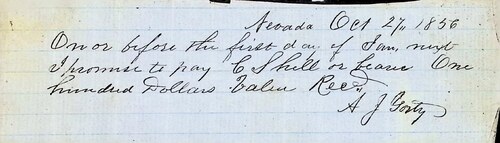 Nevada Oct 27, 1856
On or before the first day of Jan next
I promise to pay C Shell or bearer One
hundred Dollars Value Recd
A J